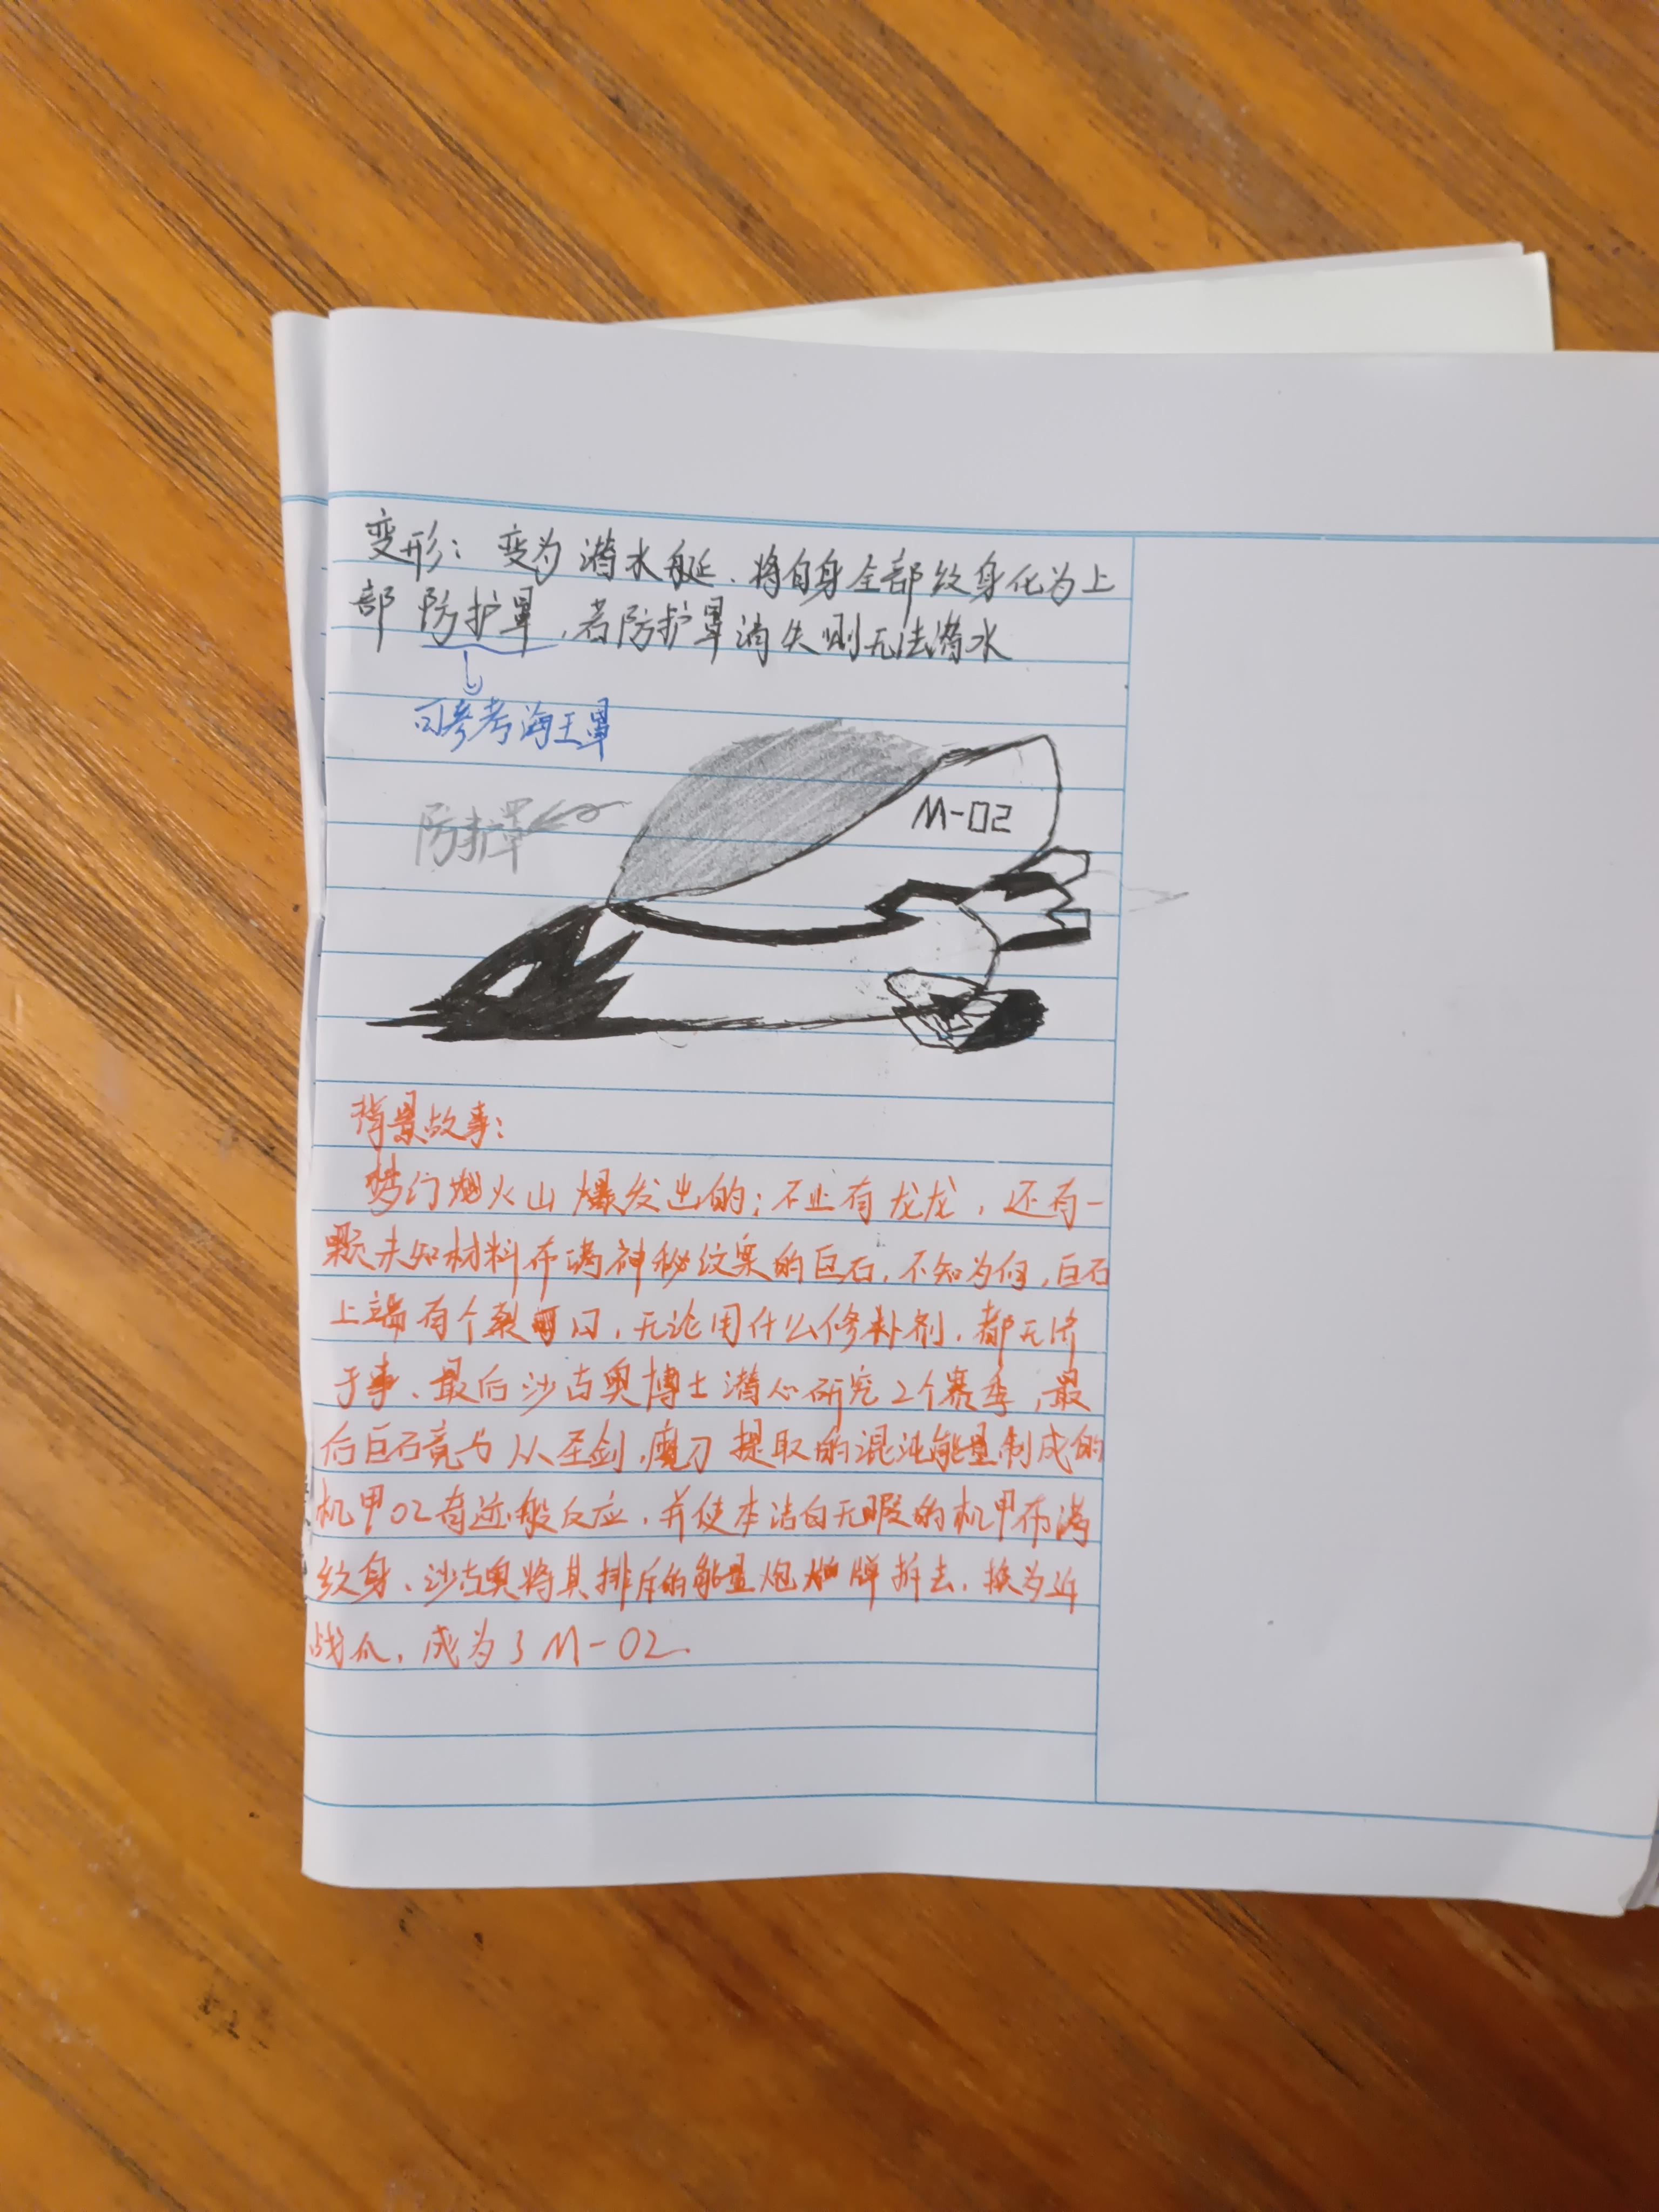 变形：变为潜水艇、将自身全部纹身化为上
部防护罩，若防护罩消失则无法潜水
可参考海王罩
防护罩
M-02
背景故事：
梦幻火山爆发出的；不止有龙龙，还有一
颗未知材料布满神秘纹案的巨石，不知为何，巨石
上端有个裂口，无论用什么修补剂，都无济
于事、最后沙古奥博士潜心研究2个赛季，最
后巨石竟与从圣剑，魔刀提取的混沌能量制成的
机甲02有迹般反应，并使本洁白无暇的机甲布满
纹身、沙古奥将其排斥的能量炮牌拆去，换为近
战爪，成为了M-02.